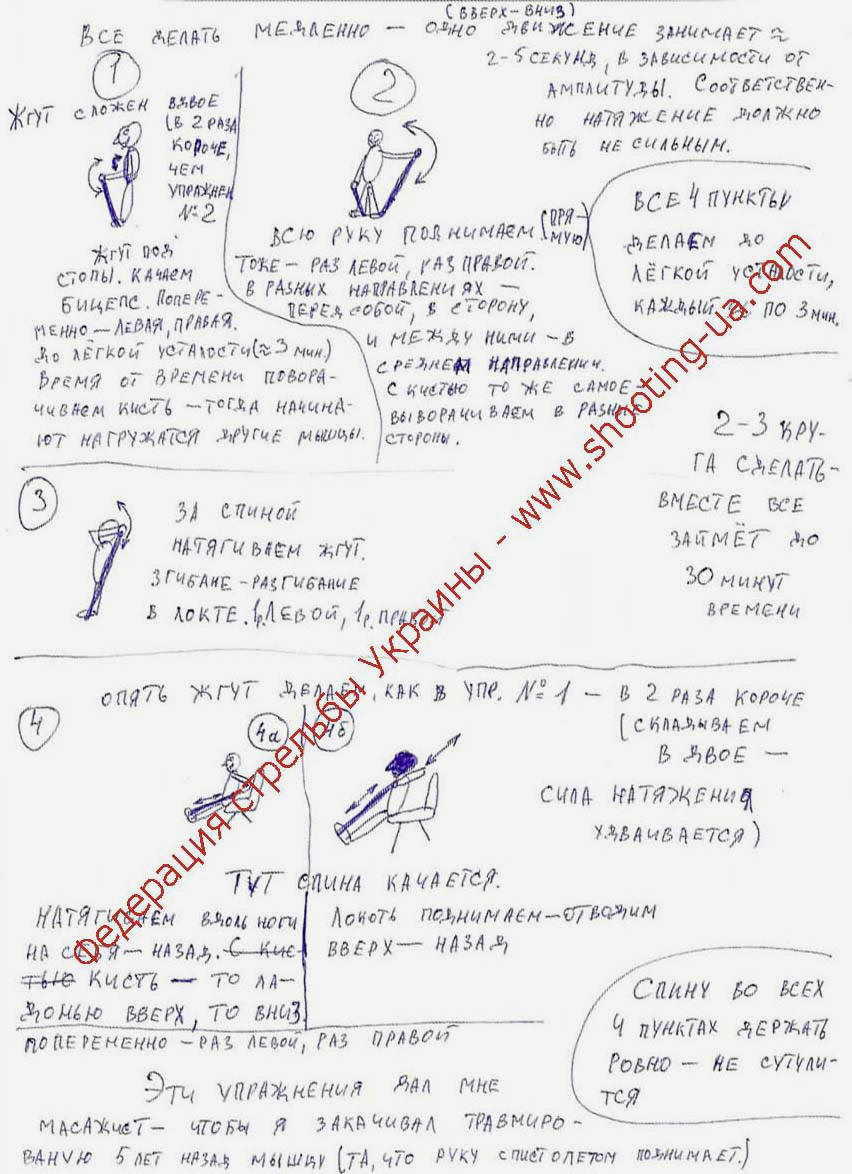 (ВВЕРХ-ВНИЗ)
ВСЕ ДЕЛАТЬ МЕДЛЕННО — ОДНО ДВИЖЕНИЕ ЗАНИМАЕТ ≈
2-5 СЕКУНД, В ЗАВИСИМОСТИ ОТ
АМПЛИТУДЫ. СООТВЕТСТВЕН-
НО НАТЯЖЕНИЕ ДОЛЖНО
БЫТЬ НЕ СИЛЬНЫМ.
1
ЖГУТ СЛОЖЕН ВДВОЕ
(В 2 РАЗА
КОРОЧЕ,
ЧЕМ
УПРАЖНЕН
№2
ЖГУТ ПОД
СТОПЫ. КАЧАЕМ
БИЦЕПС. ПОПЕРЕ-
МЕННО — ЛЕВАЯ, ПРАВАЯ.
ДО ЛЁГКОЙ УСТАЛОСТИ (≈3 МИН.)
ВРЕМЯ ОТ ВРЕМЕНИ ПОВОРА-
ЧИВАЕМ КИСТЬ — ТОГДА НАЧИНА-
ЮТ НАГРУЖАТСЯ ДРУГИЕ МЫШЦЫ.
2
ВСЮ РУКУ ПОДНИМАЕМ (ПРЯ-
МУЮ)
ТОЖЕ — РАЗ ЛЕВОЙ, РАЗ ПРАВОЙ.
В РАЗНЫХ НАПРАВЛЕНИЯХ —
ПЕРЕД СОБОЙ, В СТОРОНУ,
И МЕЖДУ НИМИ — В
СРЕДНЕМ НАПРАВЛЕНИИ.
С КИСТЬЮ ТО ЖЕ САМОЕ —
ВЫВОРАЧИВАЕМ В РАЗНЫЕ
СТОРОНЫ.
ВСЕ 4 ПУНКТЫ
ДЕЛАЕМ ДО
ЛЁГКОЙ УСТАЛОСТИ,
КАЖДЫЙ ПО 3 МИН.
2-3 КРУ-
ГА СДЕЛАТЬ-
ВМЕСТЕ ВСЕ
ЗАЙМЁТ ДО
30 МИНУТ
ВРЕМЕНИ
3
ЗА СПИНОЙ
НАТЯГИВАЕМ ЖГУТ.
ЗГИБАНЕ-РАЗГИБАНИЕ
В ЛОКТЕ. 1р. ЛЕВОЙ, 1р. ПРАВОЙ
4
ОПЯТЬ ЖГУТ ДЕЛАЕМ, КАК В УПР. №1 — В 2 РАЗА КОРОЧЕ
(СКЛАДЫВАЕМ
В ДВОЕ —
СИЛА НАТЯЖЕНИЯ
УДВАИВАЕТСЯ)
4а
4б
ТУТ СПИНА КАЧАЕТСЯ.
НАТЯГИВАЕМ ВДОЛЬ НОГИ
НА СЕБЯ — НАЗАД. С КИС-
ТЬЮ КИСТЬ — ТО ЛА-
ДОНЬЮ ВВЕРХ, ТО ВНИЗ.
ЛОКОТЬ ПОДНИМАЕМ — ОТВОДИМ
ВВЕРХ — НАЗАД
ПОПЕРЕМЕННО — РАЗ ЛЕВОЙ, РАЗ ПРАВОЙ
СПИНУ ВО ВСЕХ
4 ПУНКТАХ ДЕРЖАТЬ
РОВНО — НЕ СУТУЛИ-
ТСЯ
ЭТИ УПРАЖНЕНИЯ ДАЛ МНЕ
МАСАЖИСТ — ЧТОБЫ Я ЗАКАЧИВАЛ ТРАВМИРО-
ВАНУЮ 5 ЛЕТ НАЗАД МЫШЦУ (ТА, ЧТО РУКУ С ПИСТОЛЕТОМ ПОДНИМАЕТ.)
Федерация стрельбы Украины - www.shooting-ua.com